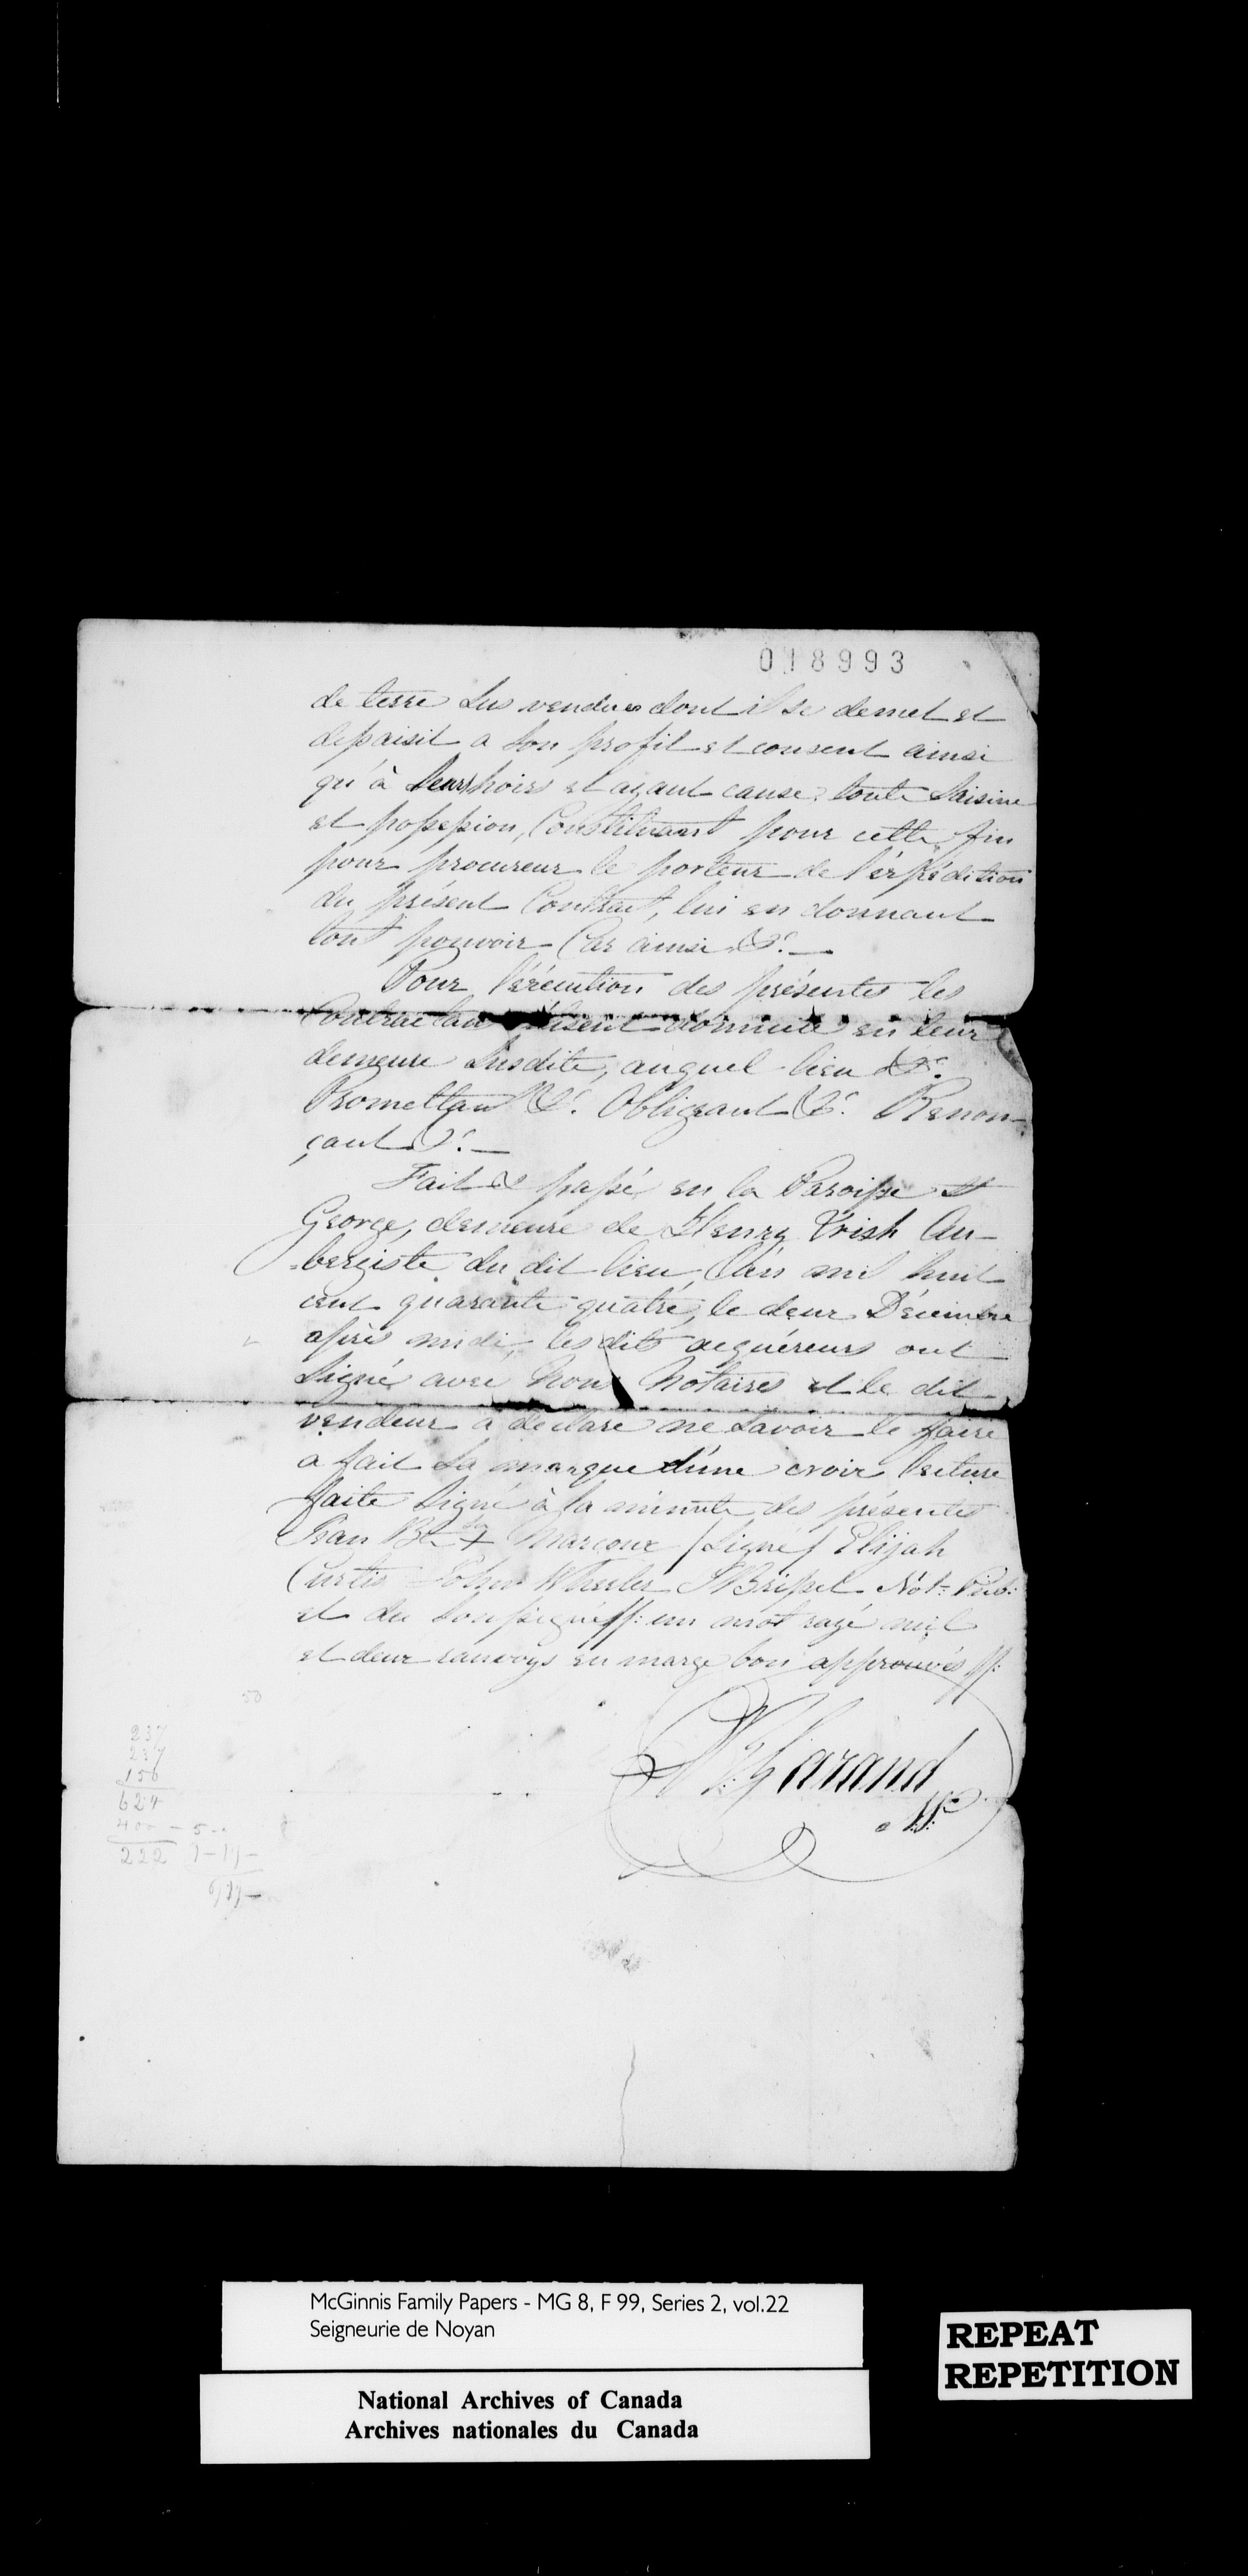 018993
de terre sus vendues dont il se demet et
dessaisit a son profit et consent ainsi
qu'à leurs hoirs et ayant cause toute saisine
et possession, Constituant pour cette fin
pour procureur le porteur de l'expédition
du présent Contrat, lui en donnant
tout pouvoir Car ainsi &c.
Pour l'éxécution des présentes les
Contractans élisent domicile en leur
demeure susdite, auquel lieu &c.
Promettant &c. Obligeant &c. Renon-
çant &c.
Fait & passé en la Paroisse St
George, demeure de Henry Trish Au-
bergiste du dit lieu, l'an mil huit
cent quarante quatre, le deux Décembre
après midi, les dits acquéreurs ont
signé avec nous Notaires et le dit
vendeur a déclaré ne savoir le faire
a fait sa marque d'une croix lecture
faite Signé à la minute des présentes
Jean Bte sa + Marcoux / Signé / Elijah
Curtis John Wheeler Not: Pub:
et du soussigné //: un mot rayé nul
et deux renvoys en marge bon approuvés //:
50
237
237
150
624
400 - 5 -
222
McGinnis Family Papers - MG 8, F 99, Series 2, vol.22
Seigneurie de Noyan
REPEAT
REPETITION
National Archives of Canada
Archives nationales du Canada